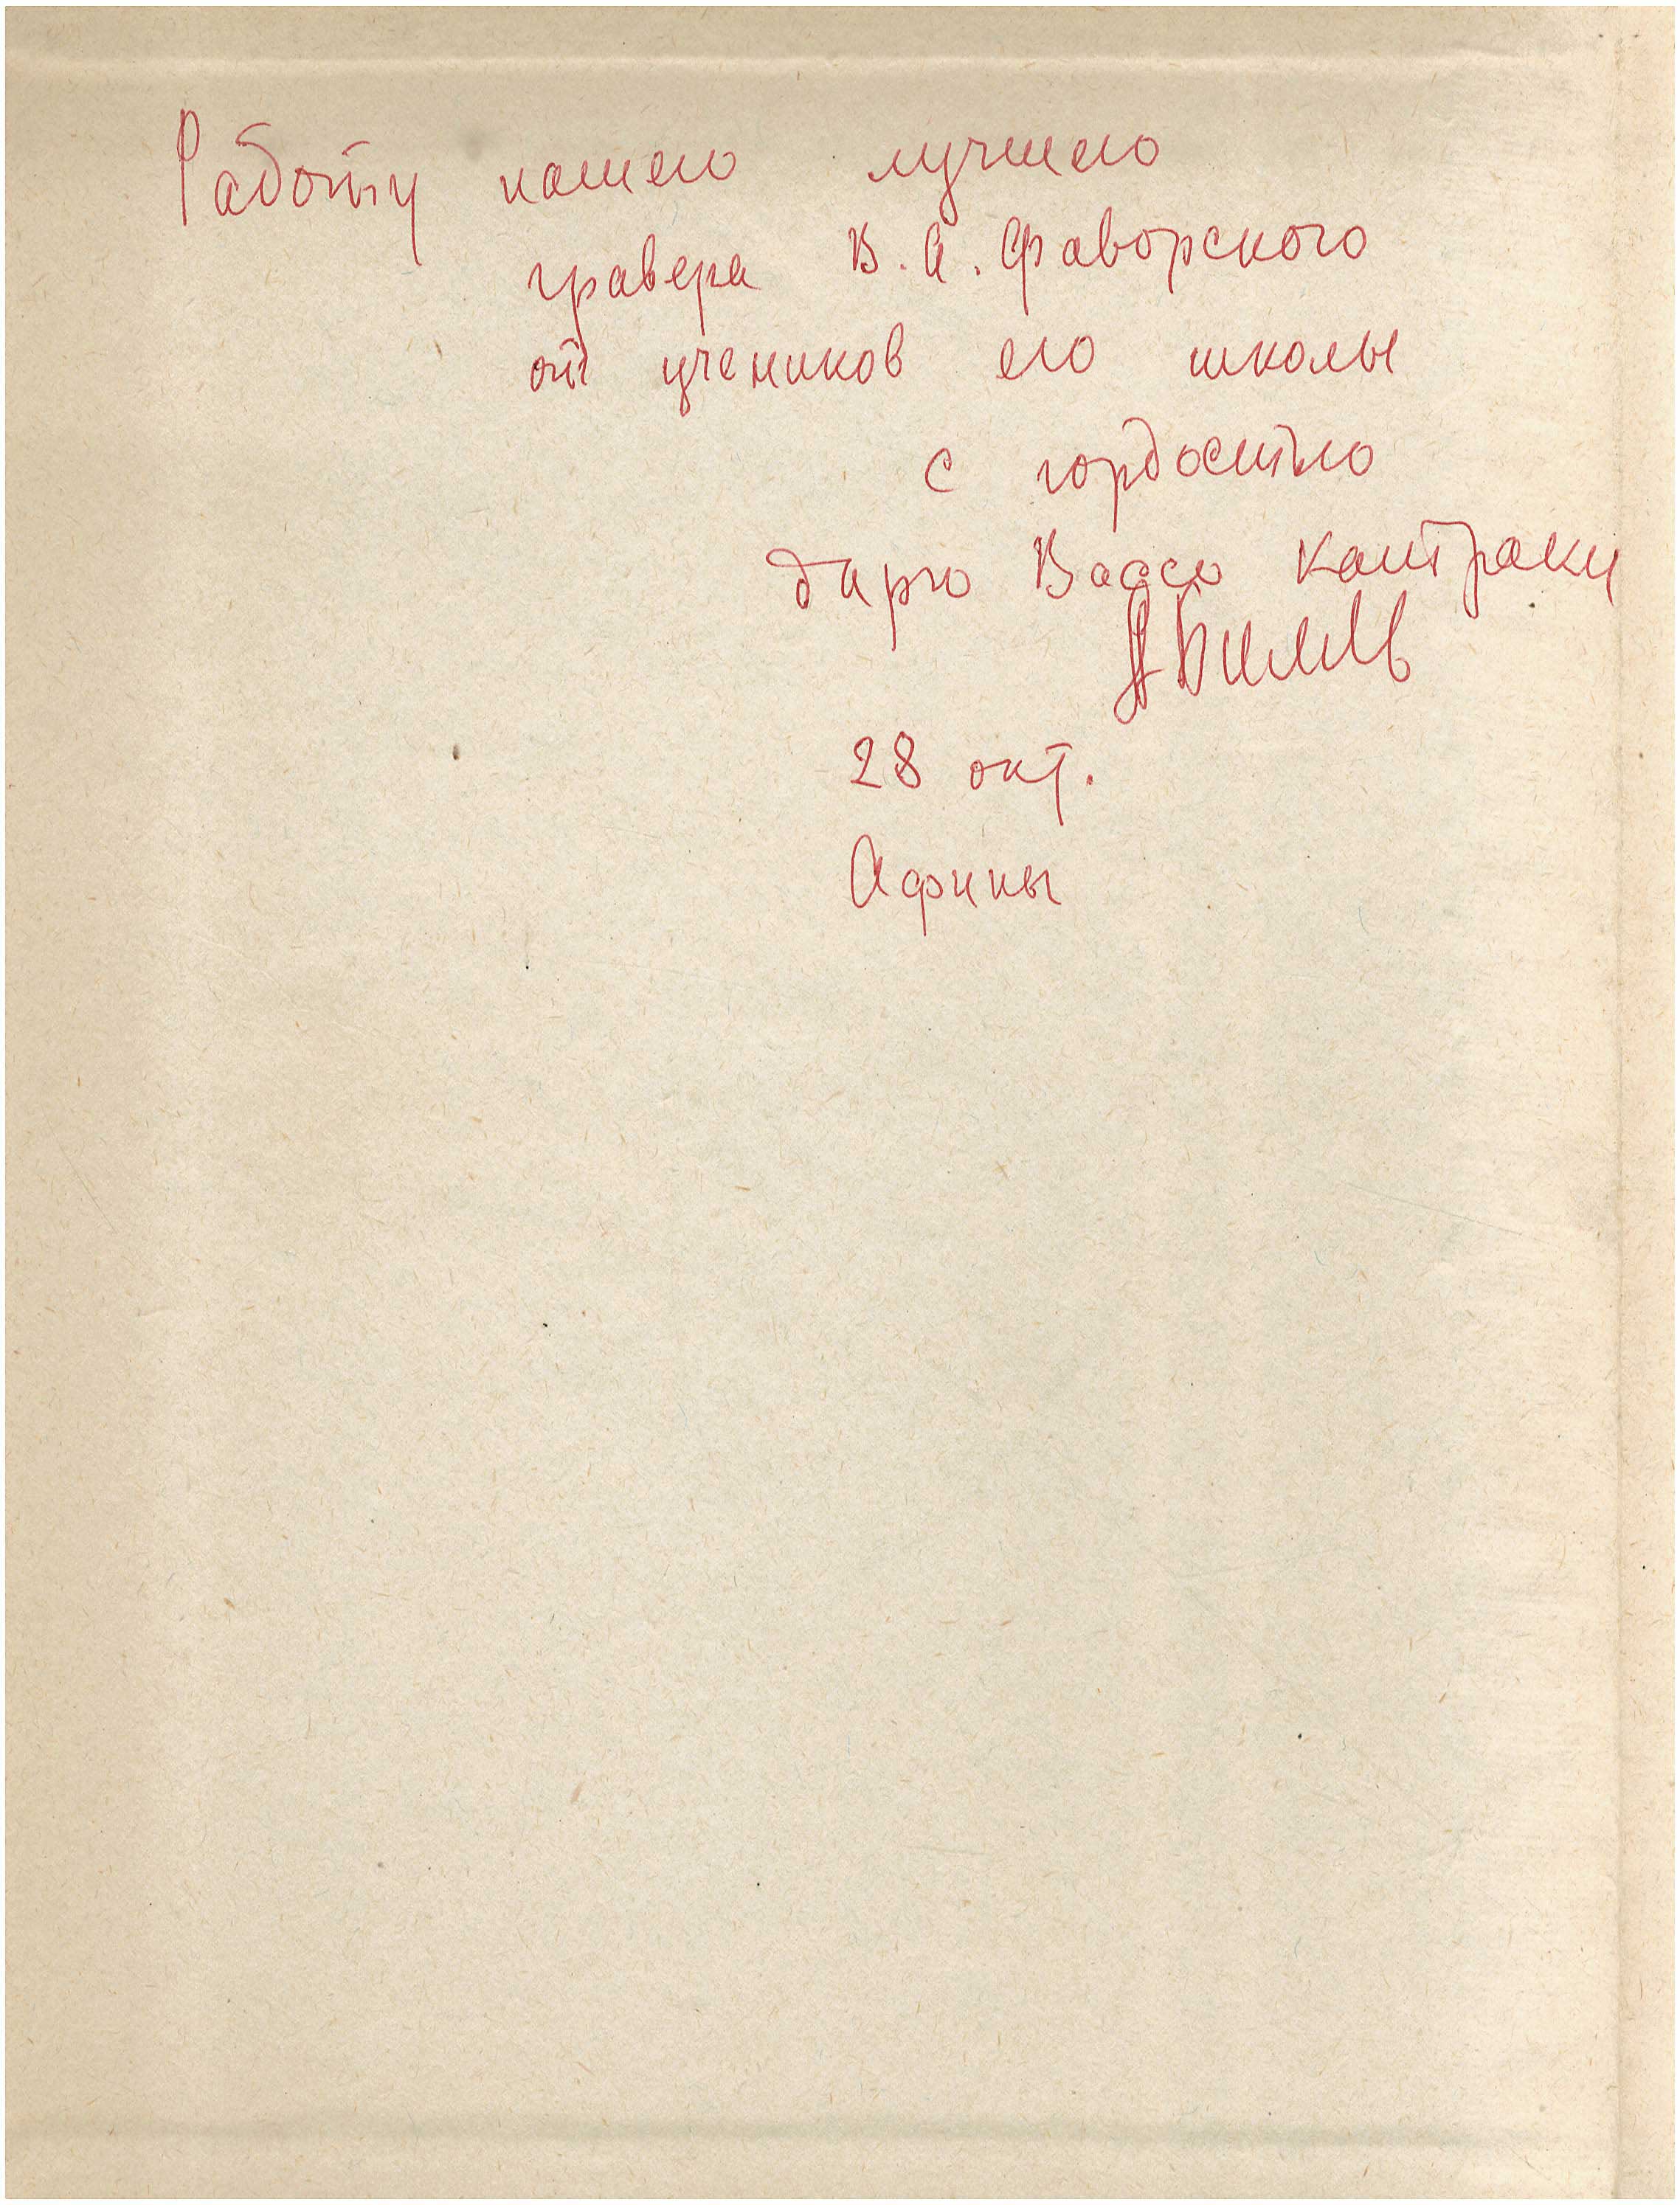 Работу нашего лучшего
гравера В. А. Фаворского
от учеников его школы
с гордостью
дарю Вассо Катраки
28 окт.
Афины